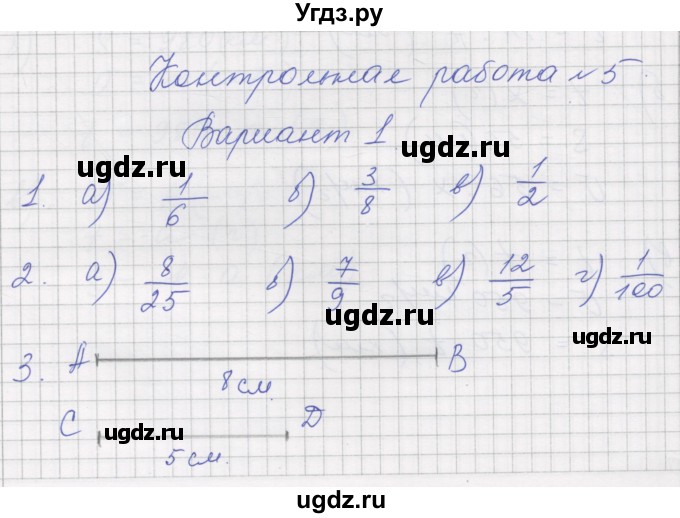 Угдз.ру
Контрольная работа №5.
Вариант 1
ugdz.ru ugdz.ru
1. а) 1/6 б) 3/8 в) 1/2
2. а) 8/25 б) 7/9 в) 12/5 г) 1/100
ugdz.ru ugdz.ru
3. A B
8 см.
C D
ugdz.ru
5 см.
ugdz.ru